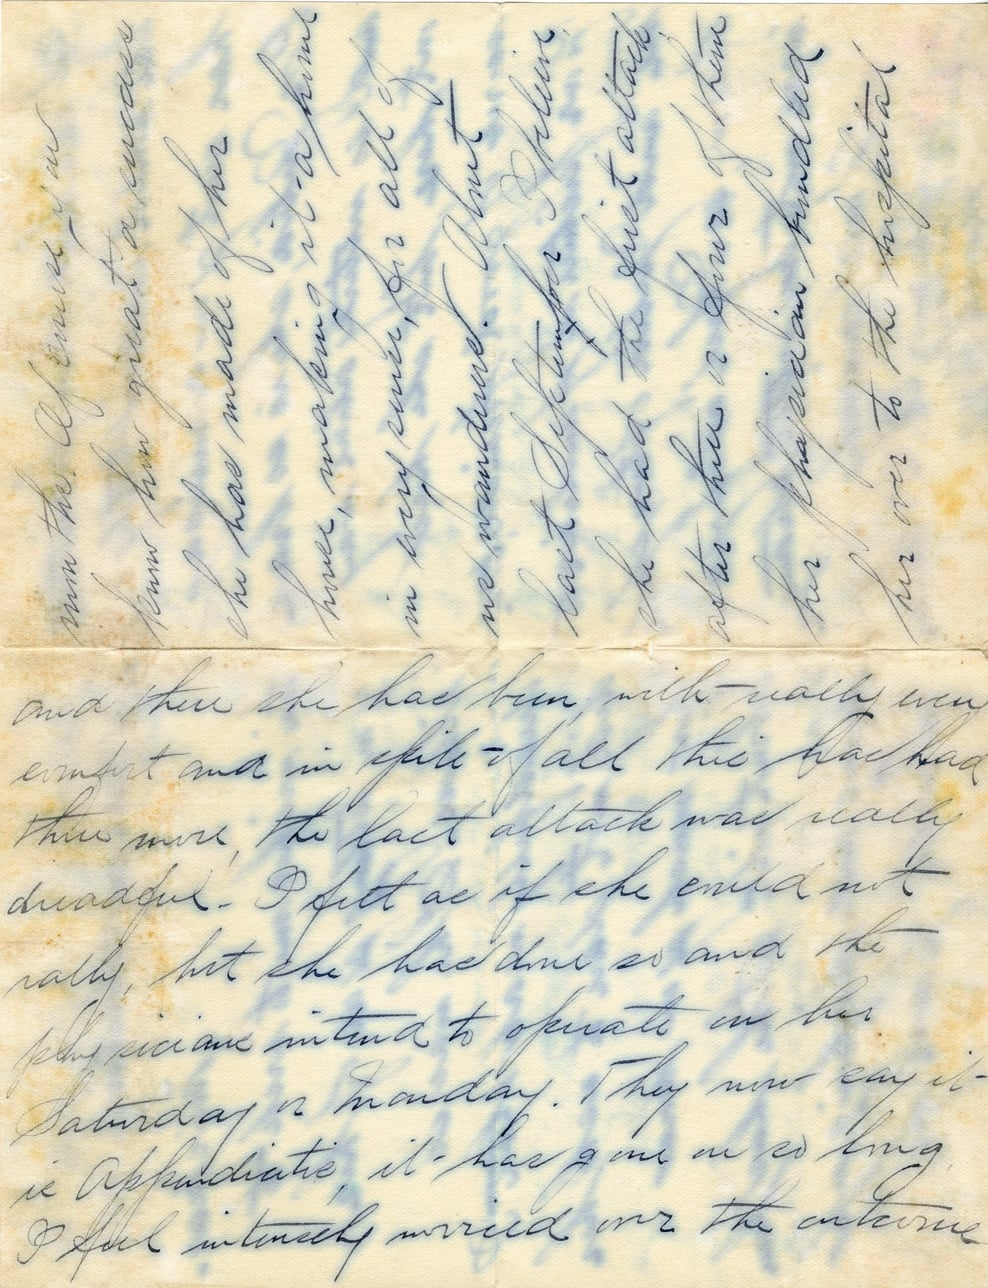 mm the. Of course you
know how great a success
she has made of her
house, making it a home
in every sense, for all of
us wanderers. About
last September I believe,
she had the first attack,
after three or four of them
her physician bundled
her over to the hospital
and there she has been, with really every
comfort and in spite of all this has had
three more, the last attack was really
dreadful. I felt as if she could not
rally, but she has done so and the
physicians intend to operate on her
Saturday or Monday. They now say it
is Appendicitis, it has gone on so long,
I feel intensely worried over the outcome